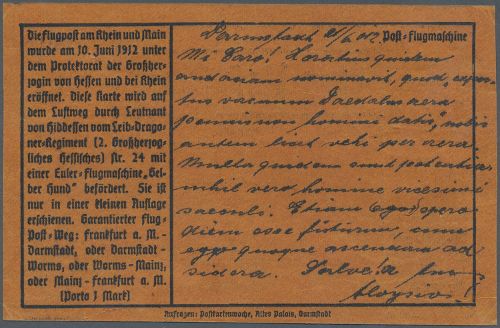 Die Flugpost am Rhein und Main
wurde am 10. Juni 1912 unter
dem Protektorat der Großher-
zogin von Hessen und bei Rhein
eröffnet. Diese Karte wird auf
dem Luftweg durch Leutnant
von Hiddessen vom Leib-Drago-
ner-Regiment (2. Großherzog-
liches Hessisches) Nr. 24 mit
einer Euler-Flugmaschine „Gel-
ber Hund“ befördert. Sie ist
nur in einer kleinen Auflage
erschienen. Garantierter Flug-
Post-Weg: Frankfurt a. M.-
Darmstadt, oder Darmstadt-
Worms, oder Worms-Mainz,
oder Mainz-Frankfurt a. M.
(Porto 1 Mark)
Post-Flugmaschine
Mi Caro! Horatius quidem
audaciam nominavit, quod „exper-
tus vacuum Daedalus aera
pennis non homini datis“, nobis
autem licet vehi per aera.
Multa quidem sunt potentia
nihil vero homine vicesimi
saeculi. Etiam Ego spero
diem esse futurum, cum
ego quoque ascendam ad
sidera. Salve! a
Aloysio!
Anfragen: Postkartenwoche, Altes Palais, Darmstadt